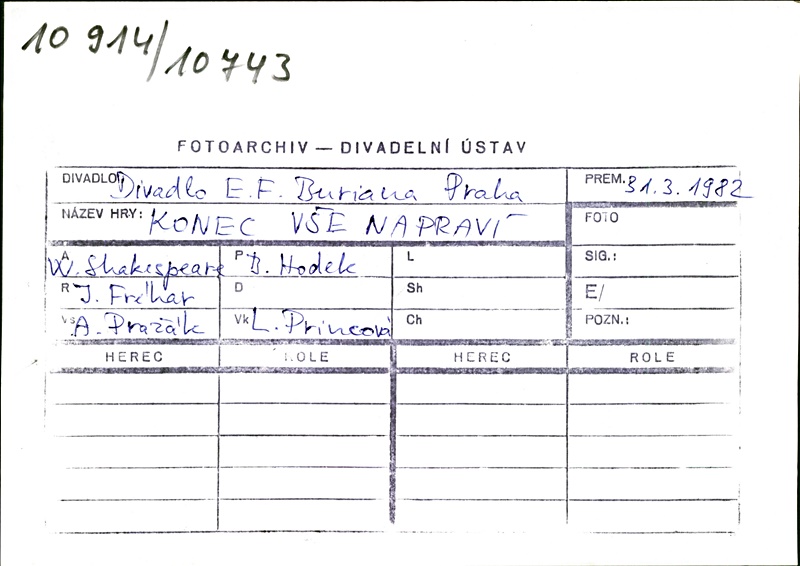 10 914/10 743
FOTOARCHIV — DIVADELNÍ ÚSTAV
DIVADLO: Divadlo E.F. Buriana Praha
PREM. 31.3.1982
NÁZEV HRY: KONEC VŠE NAPRAVÍ
FOTO
A W. Shakespeare P B. Hodek L SIG.:
R J. Fréhar D Sh E/
Vs A. Pražák Vk L. Princová Ch POZN.:
HEREC ROLE HEREC ROLE